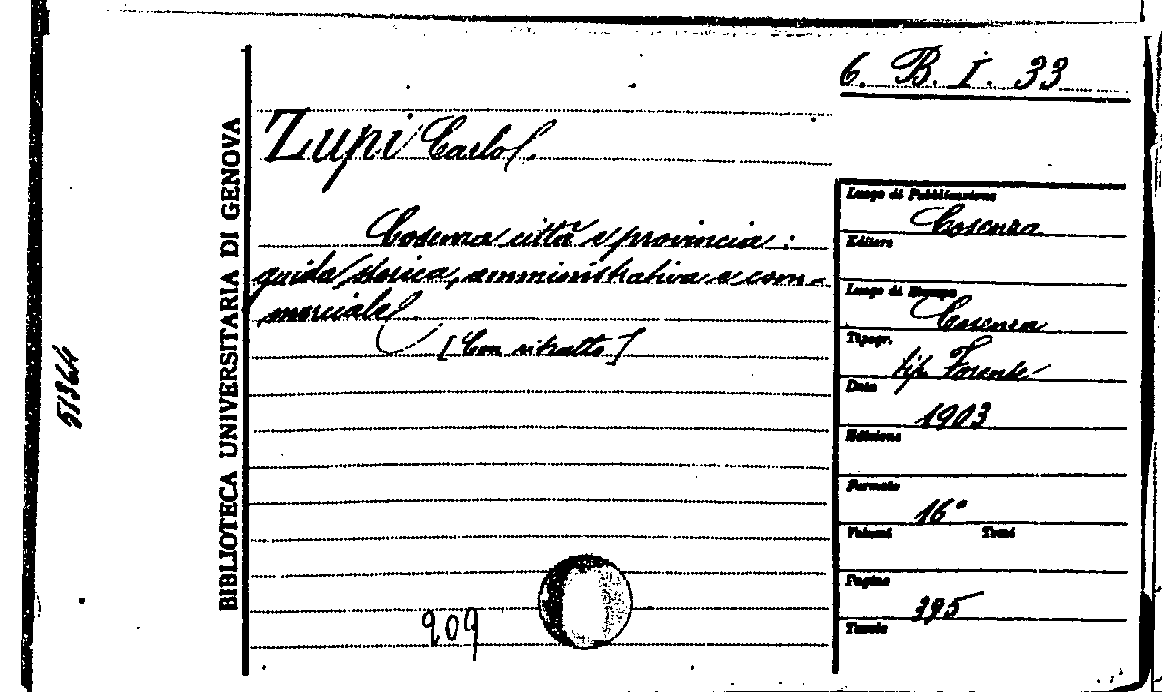 6. B. I. 33
BIBLIOTECA UNIVERSITARIA DI GENOVA
51364
Zupi Carlo.
Cosenza città e provincia:
guida storica, amministrativa e com-
merciale
[Con ritratto]
909
Luogo di Pubblicazione
Cosenza
Editore
Luogo di Stampa
Cosenza
Tipogr.
tip.
Data
1903
Edizione
Formato
16°
Volumi Tomi
Pagine
395
Tavole